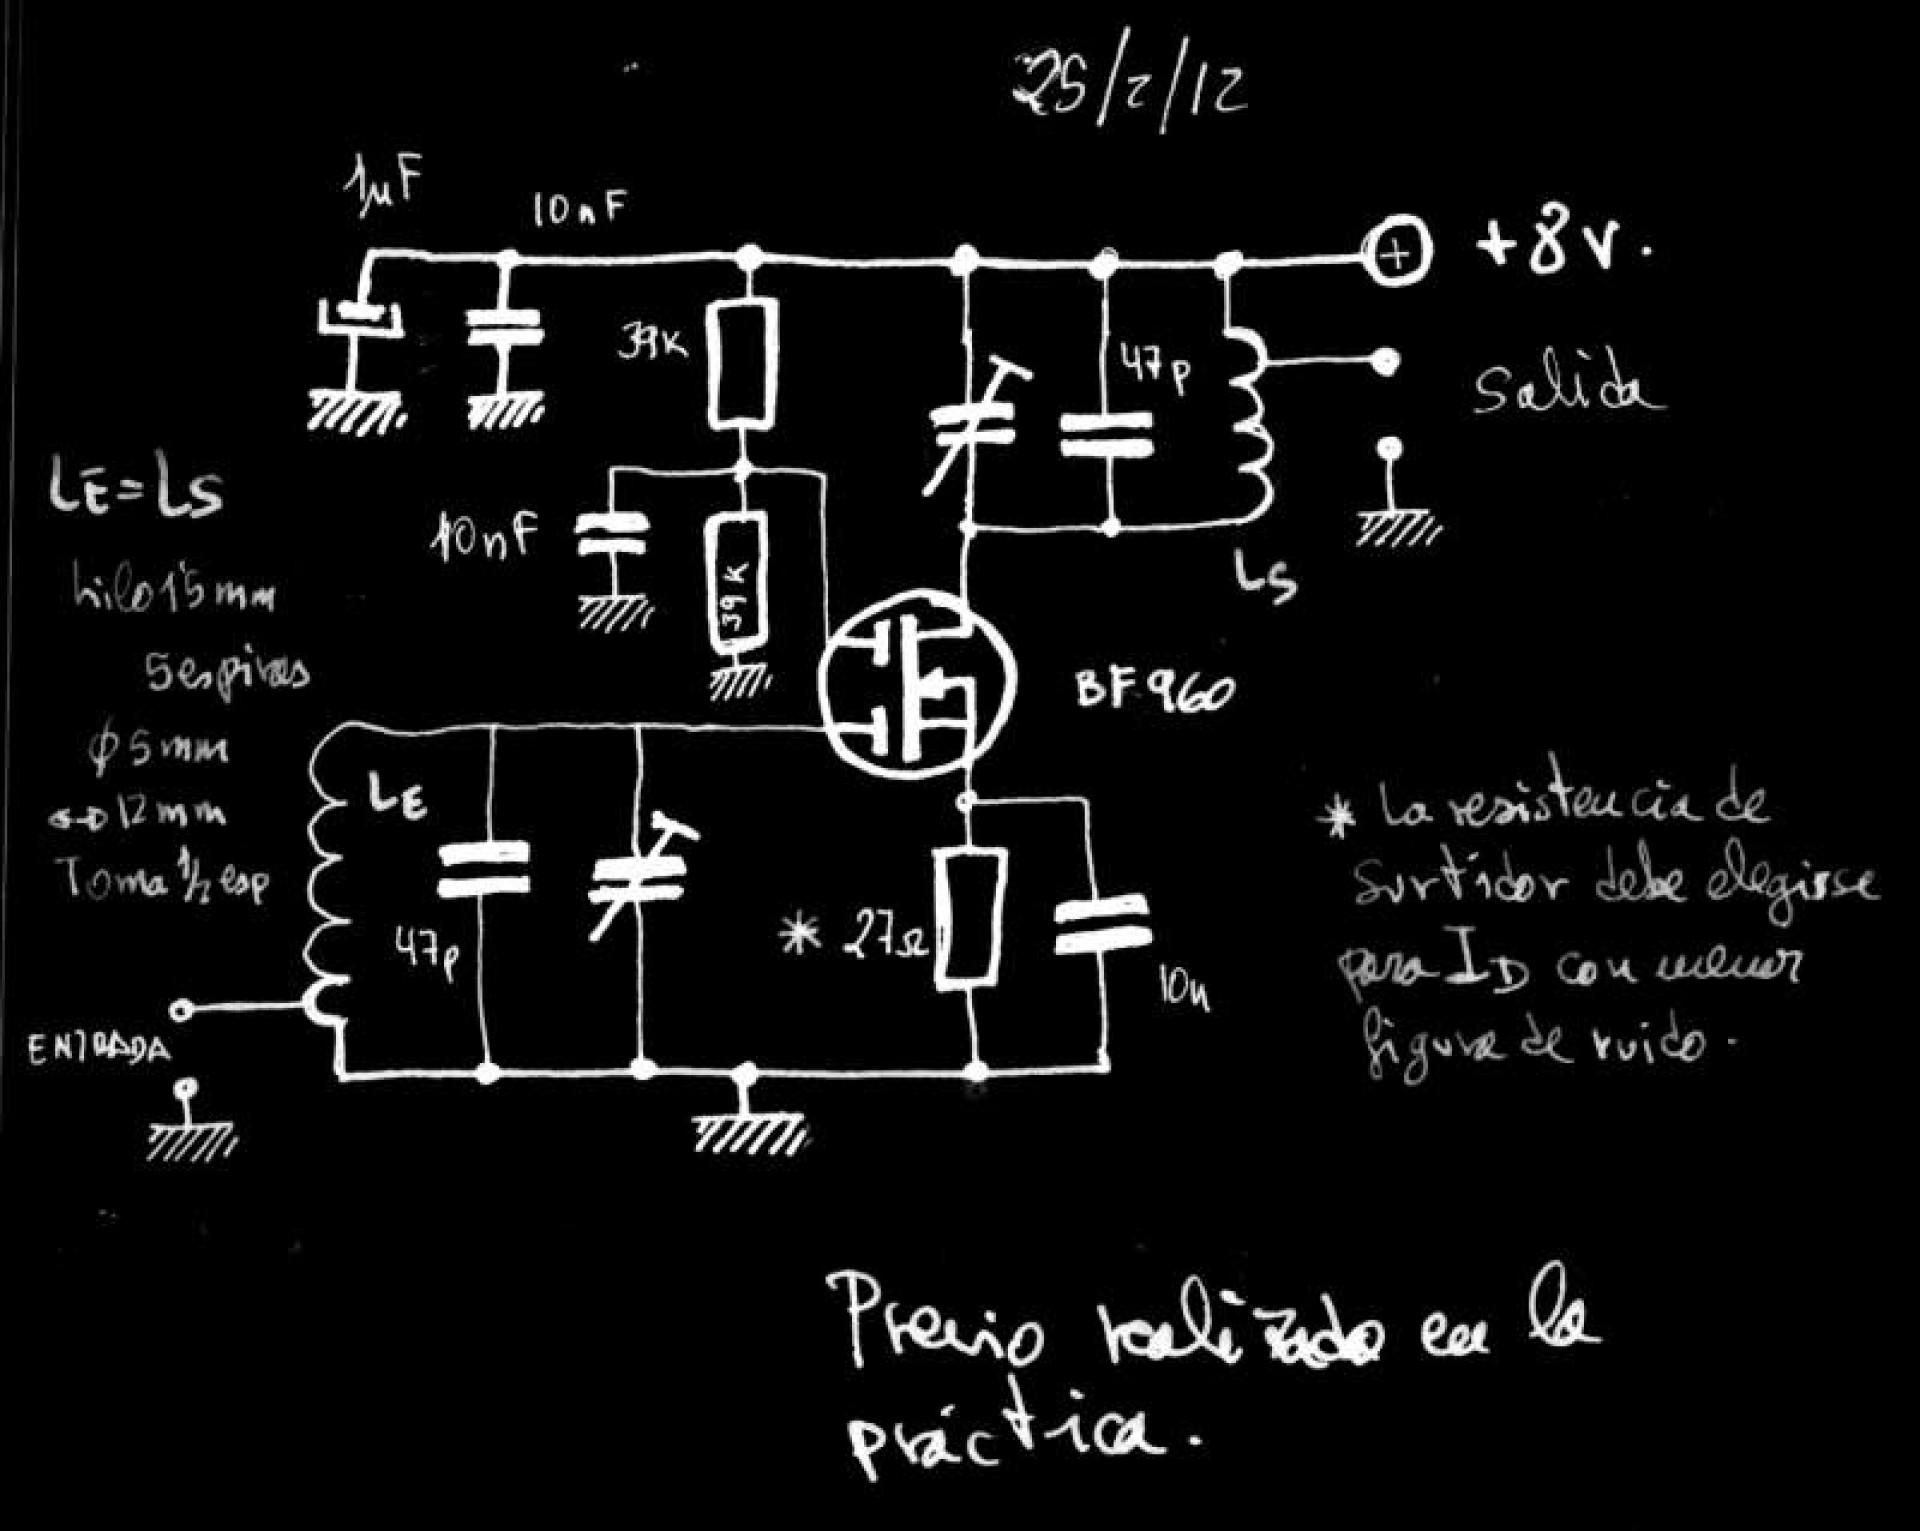 25/2/12
1µF
10nF
+8v.
39K
47p
Salida
LE=LS
hilo 1'5 mm
5 espiras
φ 5 mm
↔ 12 mm
Toma 1/2 esp
10nF
39K
LS
BF960
LE
47p
* 27Ω
10n
ENTRADA
* La resistencia de
surtidor debe elegirse
para ID con menor
figura de ruido.
Previo realizado en la
práctica.